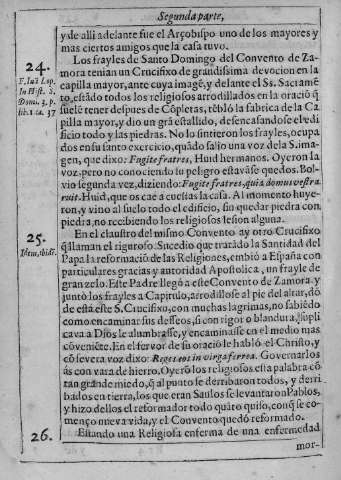 Segunda parte,
y de alli adelante fue el Arçobispo uno de los mayores y
mas ciertos amigos que la casa tuvo.
24.
Los frayles de Santo Domingo del Convento de Za-
F. Iuã Lop.
In Hist. S.
Domi. 3. p.
lib. 1 ca. 37
mora tenian un Crucifixo de grandissima devocion en la
capilla mayor, ante cuya imagẽ, y delante el Ss. Sacramẽ
to, estãdo todos los religiosos arrodillados en la oraciõ q̃
suelẽ tener despues de Cõpletas, tẽblò la fabrica de la Ca
pilla mayor, y dio un grã estallido, desencasandose el edi
ficio todo y las piedras. No lo sintieron los frayles, ocupa
dos en su santo exercicio, quãdo salio una voz de la S. ima-
gen, que dixo: Fugite fratres, Huid hermanos. Oyeron la
voz, pero no conociendo su peligro estavãse quedos. Bol-
vio segunda vez, diziendo: Fugite fratres, quia domus vestra
ruit. Huid, que os cae a cuestas la casa. Al momento huye-
ron, y vino al suelo todo el edificio, sin quedar piedra con
piedra, no recibiendo los religiosos lesion alguna.
25.
En el claustro del mismo Convento ay otro Crucifixo
Idem, ibidẽ.
q̃ llaman el riguroso. Sucedio que tratãdo la Santidad del
Papa la reformaciõ de las Religiones, embiò a España con
particulares gracias y autoridad Apostolica, un frayle de
gran zelo. Este Padre llegò a este Convento de Zamora, y
juntò los frayles a Capitulo, arrodillose al pie del altar, dõ
de està este S. Crucifixo, con muchas lagrimas, no sabiẽdo
como encaminar sus desseos, si con rigor o blandura, supli
cava a Dios le alumbrasse, y encaminasse en el medio mas
cõveniẽte. En el fervor de su oraciõ le hablò el Christo, y
cõ severa voz dixo: Reges eos in virga ferrea. Governarlos
às con vara de hierro. Oyerõ los religiosos esta palabra cõ
tan grande miedo, q̃ al punto se derribaron todos, y derri
bados en tierra, los que eran Saulos se levantarõ Pablos,
y hizo dellos el reformador todo quãto quiso, conq̃ se co-
menço nueva vida, y el Convento quedò reformado.
26.
Estando una Religiosa enferma de una enfermedad
mor-